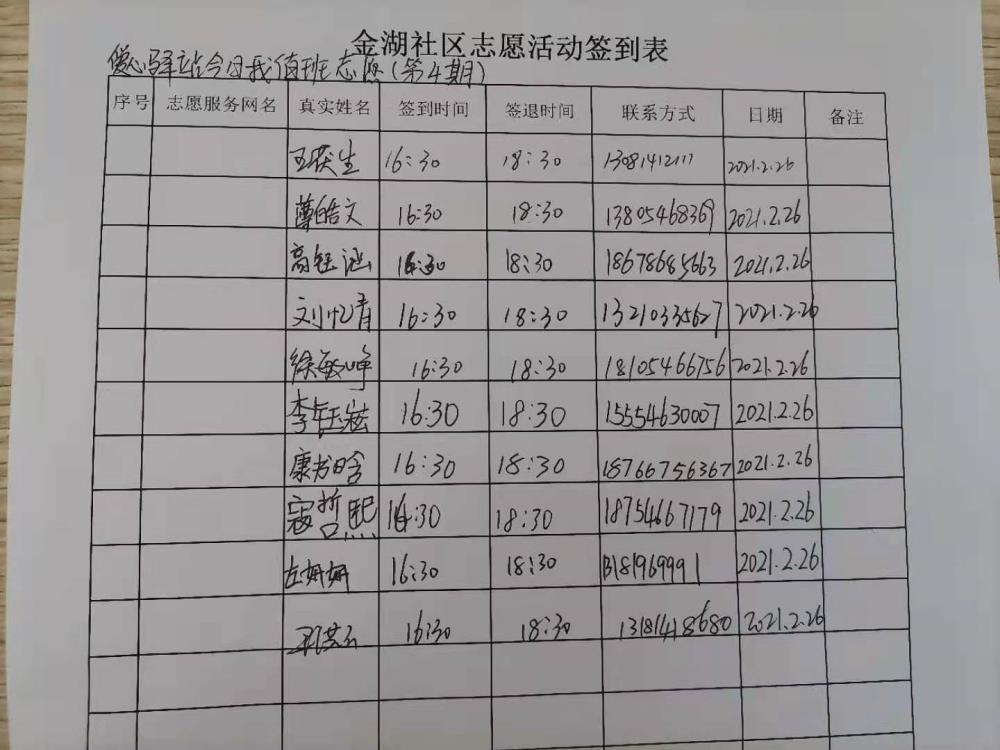 金湖社区志愿活动签到表
爱心驿站今日我值班志愿(第4期)
序号 志愿服务网名 真实姓名 签到时间 签退时间 联系方式 日期 备注
16:30 18:30 2021.2.26
16:30 18:30 13805468369 2021.2.26
高钰涵 16:30 18:30 18678685663 2021.2.26
刘忆青 16:30 18:30 13210335627 2021.2.26
徐敏峥 16:30 18:30 18105466756 2021.2.26
16:30 18:30 15554630007 2021.2.26
康书晗 16:30 18:30 18766756367 2021.2.26
寇哲熙 16:30 18:30 18754667179 2021.2.26
左妍妍 16:30 18:30 2021.2.26
16:30 18:30 13181418680 2021.2.26